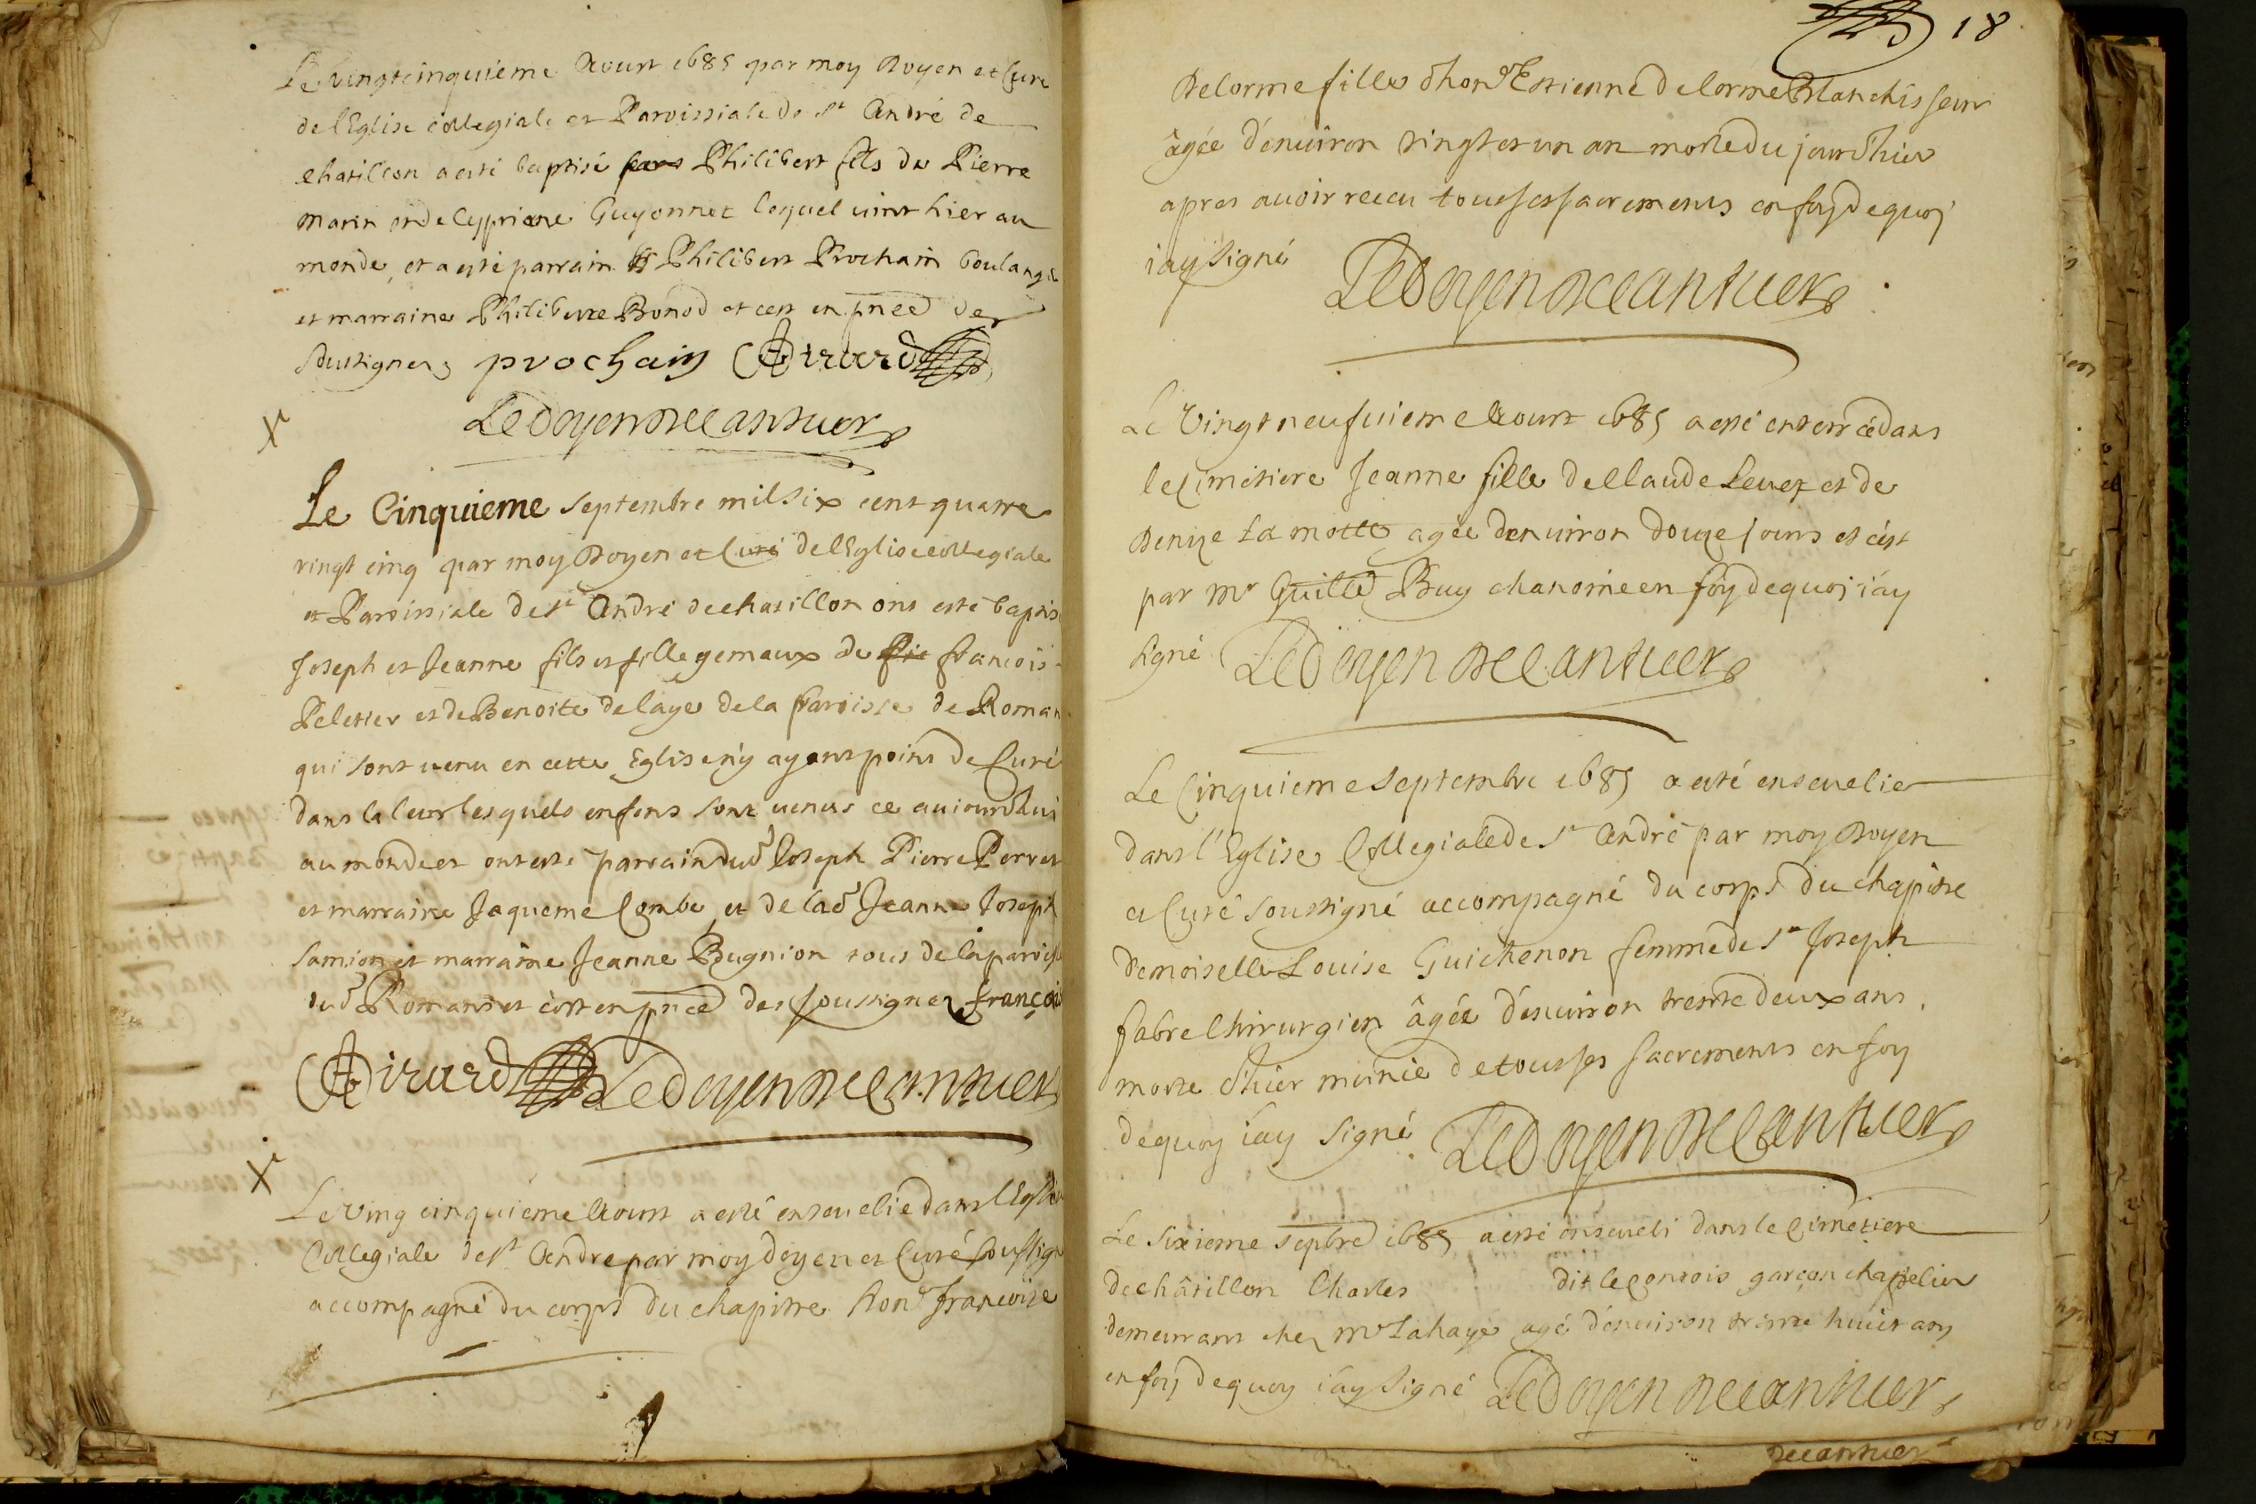 Le Vingtcinquiéme Aoust 1685 par moy Doyen et Curé
de l'Eglise collegiale et Paroissiale de St André de
chatillon a esté baptisé Philibert fils de Pierre
Marin et de Cypriane Guyonnet lequel vint hier au
monde, et a esté parrain Philibert Prochain boulang
et marraine Philiberte Bonod et c'est en pnce des
soussignez prochain Girard
Le doyen Decantuer
Le Cinquieme septembre mil six cent quatre
vingt cinq par moy Doyen et Curé de l'Eglise collegiale
et Paroissiale de st André de chatillon ont esté baptis
Joseph et Jeanne fils et fille gemeaux de francois
Peletier et de Benoite delaye de la parroisse de Roman
qui sont venu en cette Eglise n'y ayant point de Curé
dans la leur lesquels enfens sont venus ce aujourdhui
au monde et ont esté parrain dud Joseph Pierre Perret
et marraine Jaqueme Combe et de lad Jeanne Joseph
Samion et marraine Jeanne Bugnion tous de la paroisse
dud Romans et c'est en pnce des soussignez françois
Girard Le doyen Decantuer
Le Ving cinquiéme Aoust a esté ensevelie dans l'Eglise
Collegiale de st André par moy doyen et Curé soussigné
accompagné du corps du chapitre hon francoise
18
Delorme fille d'hon Estienne delorme Blanchisseur
âgée d'environ vingt et un an morte du jour d'hier
apres avoir receu tous ses sacrements en foy de quoj
j'ay signé Le doyen Decantuer
Le Vingt neufvieme Aoust 1685 a esté enterrée dans
le Cimetiere Jeanne fille de Claude Levet et de
Denize La motte agée d'environ douze jours et c'est
par Mr Guille Buy chanoine en foy de quoj j'ay
signé Le doyen Decantuer
Le Cinquieme septembre 1685 a esté ensevelie
dans l'Eglise Collegiale de St André par moy Doyen
et Curé soussigné accompagné du corps du chapitre
Demoiselle Louise Guichenon femme de Sr Joseph
fabre Chirurgien âgée d'environ trente deux ans.
morte d'hier munie de tous ses sacrements en foy
de quoy j'ay signé Le doyen Decantuer
Le Sixieme Sepbre 1685 a esté enseveli dans le Cimetiere
de châtillon Charles dit le contois garçon chapelier
demeurant chez Mr Lahaye agé d'environ trente huict ans
en foy de quoy j'ay signé Le doyen Decantuer
Decantuer